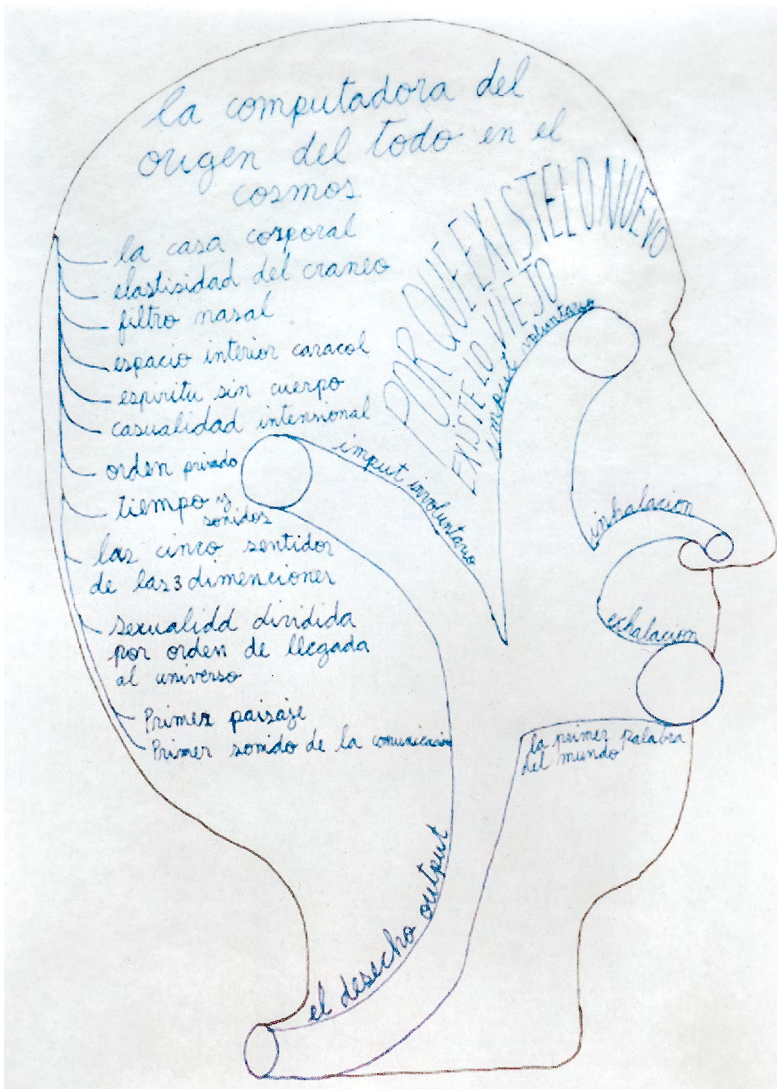 la computadora del
origen del todo en el
cosmos
la casa corporal
elastisidad del craneo
filtro nasal
espacio interior caracol
espiritu sin cuerpo
casualidad intensional
orden privado
tiempo y
sonidos
las cinco sentidor
de las 3 dimencioner
sexualidd dividida
por orden de llegada
al universo
Primer paisaje
Primer sonido de la comunicación
POR QUE EXISTE LO NUEVO
EXISTE LO VIEJO
imput voluntario
imput involuntario
inhalacion
exhalacion
la primer palabra
del mundo
el desecho output